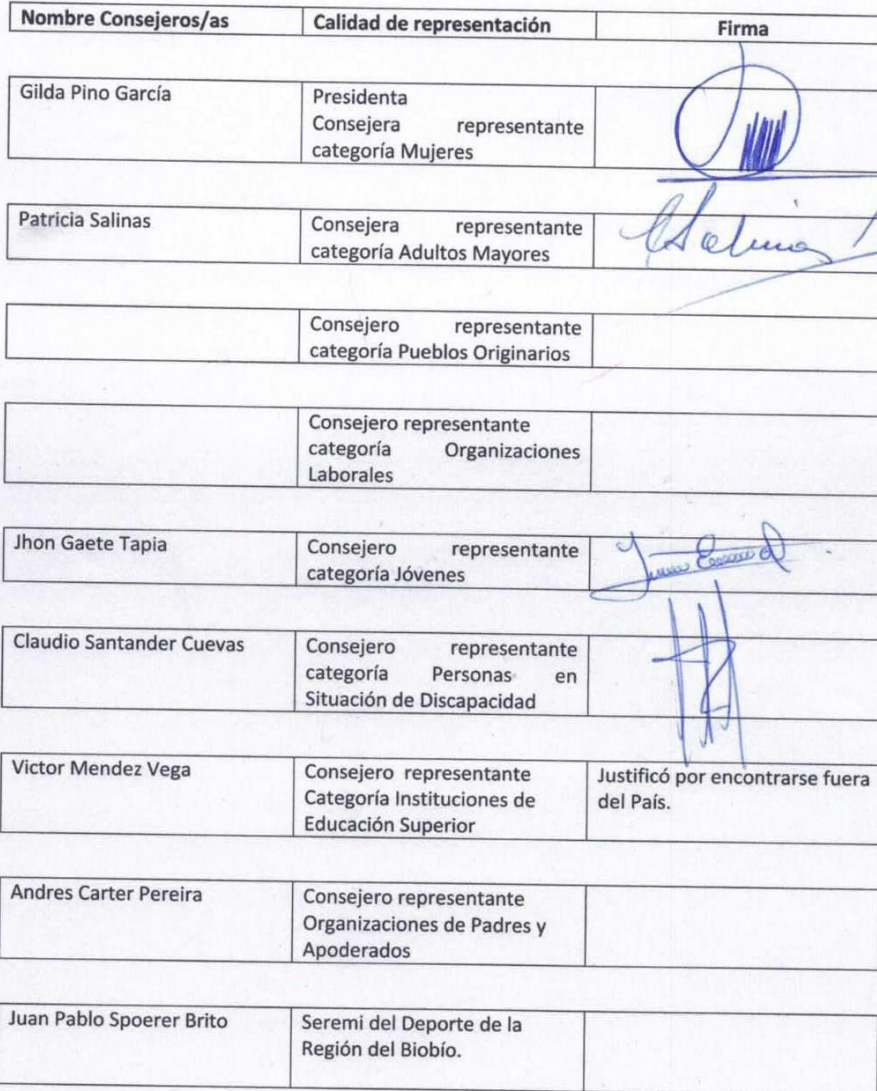 Nombre Consejeros/as Calidad de representación Firma
Gilda Pino García Presidenta
Consejera representante
categoría Mujeres
Patricia Salinas Consejera representante
categoría Adultos Mayores
Consejero representante
categoría Pueblos Originarios
Consejero representante
categoría Organizaciones
Laborales
Jhon Gaete Tapia Consejero representante
categoría Jóvenes
Claudio Santander Cuevas Consejero representante
categoría Personas en
Situación de Discapacidad
Victor Mendez Vega Consejero representante Justificó por encontrarse fuera
Categoría Instituciones de del País.
Educación Superior
Andres Carter Pereira Consejero representante
Organizaciones de Padres y
Apoderados
Juan Pablo Spoerer Brito Seremi del Deporte de la
Región del Biobío.